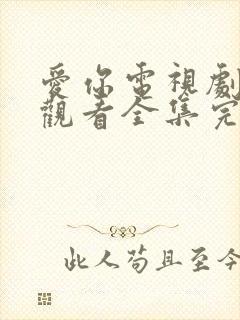 愛你電視劇
觀看全集完
此人苟且至今